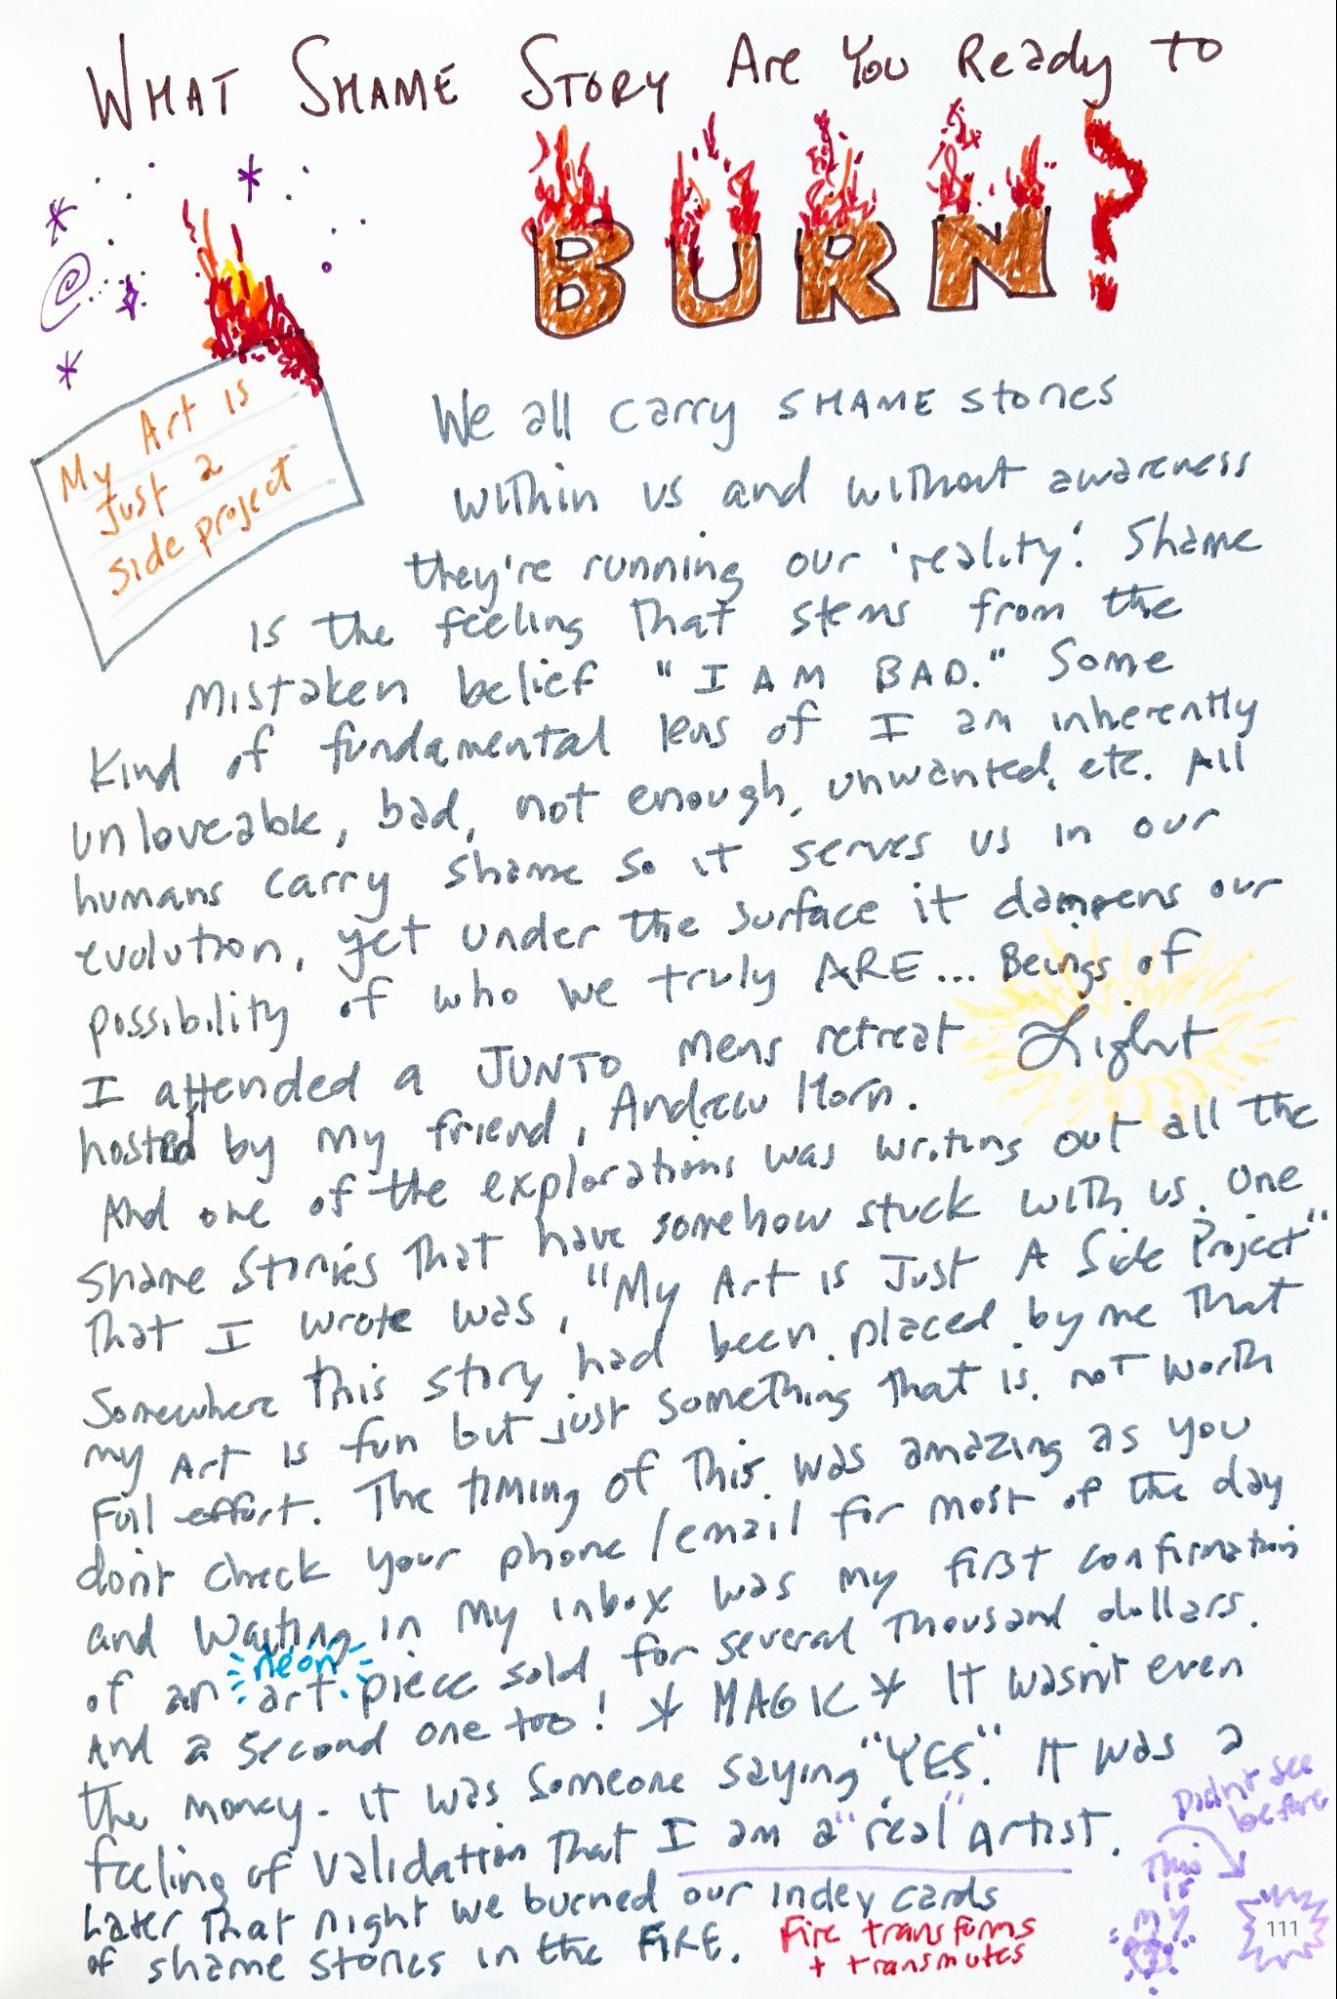 WHAT SHAME STORY Are You Ready to
BURN?
My Art is
Just a
side project
We all carry SHAME stories
within us and without awareness
they're running our 'reality'. Shame
is the feeling that stems from the
mistaken belief "I AM BAD." Some
kind of fundamental lens of I am inherently
unloveable, bad, not enough, unwanted, etc. All
humans carry shame so it serves us in our
evolution, yet under the surface it dampens our
possibility of who we truly ARE... Beings of
Light
I attended a JUNTO mens retreat
hosted by my friend, Andrew Horn.
And one of the explorations was writing out all the
shame stories that have somehow stuck with us. One
that I wrote was, "My Art is Just A Side Project"
Somewhere this story had been placed by me that
my Art is fun but just something that is not worth
full effort. The timing of this was amazing as you
don't check your phone/email for most of the day
and waiting in my inbox was my first confirmation
neon
of an art piece sold for several thousand dollars.
And a second one too! * MAGIC * It wasn't even
the money. it was someone saying "YES". It was a
feeling of validation that I am a "real" artist.
Later that night we burned our index cards
of shame stories in the FIRE.
Fire transforms
+ transmutes
Didn't see
before
This
is
my
111